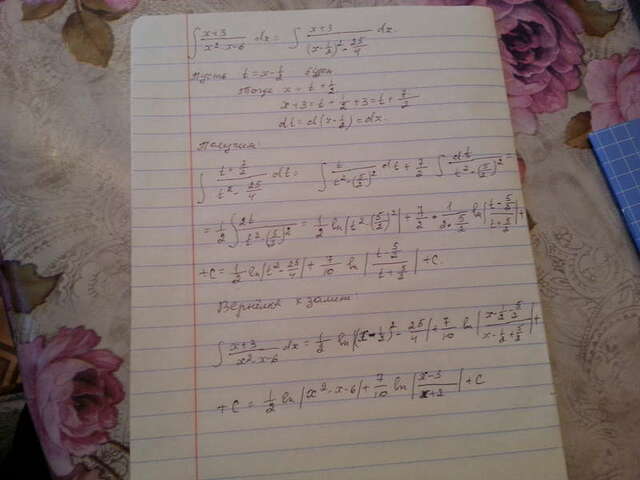 ∫ (x+3)/(x²-x-6) dx = ∫ (x+3)/((x-1/2)² - 25/4) dx.
Пусть t = x - 1/2
тогда x = t + 1/2
x+3 = t + 1/2 + 3 = t + 7/2
dt = d(x - 1/2) = dx.
Получим:
∫ (t + 7/2)/(t² - 25/4) dt = ∫ t/(t² - (5/2)²) dt + 7/2 ∫ dt/(t² - (5/2)²) =
= 1/2 ∫ 2t/(t² - (5/2)²) = 1/2 ln|t² - (5/2)²| + 7/2 · 1/(2 · 5/2) ln|(t - 5/2)/(t + 5/2)| +
+ C = 1/2 ln|t² - 25/4| + 7/10 ln|(t - 5/2)/(t + 5/2)| + C.
Вернёмся к замен
∫ (x+3)/(x²-x-6) dx = 1/2 ln|(x - 1/2)² - 25/4| + 7/10 ln|(x - 1/2 - 5/2)/(x - 1/2 + 5/2)| +
+ C = 1/2 ln|x² - x - 6| + 7/10 ln|(x-3)/(x+2)| + C